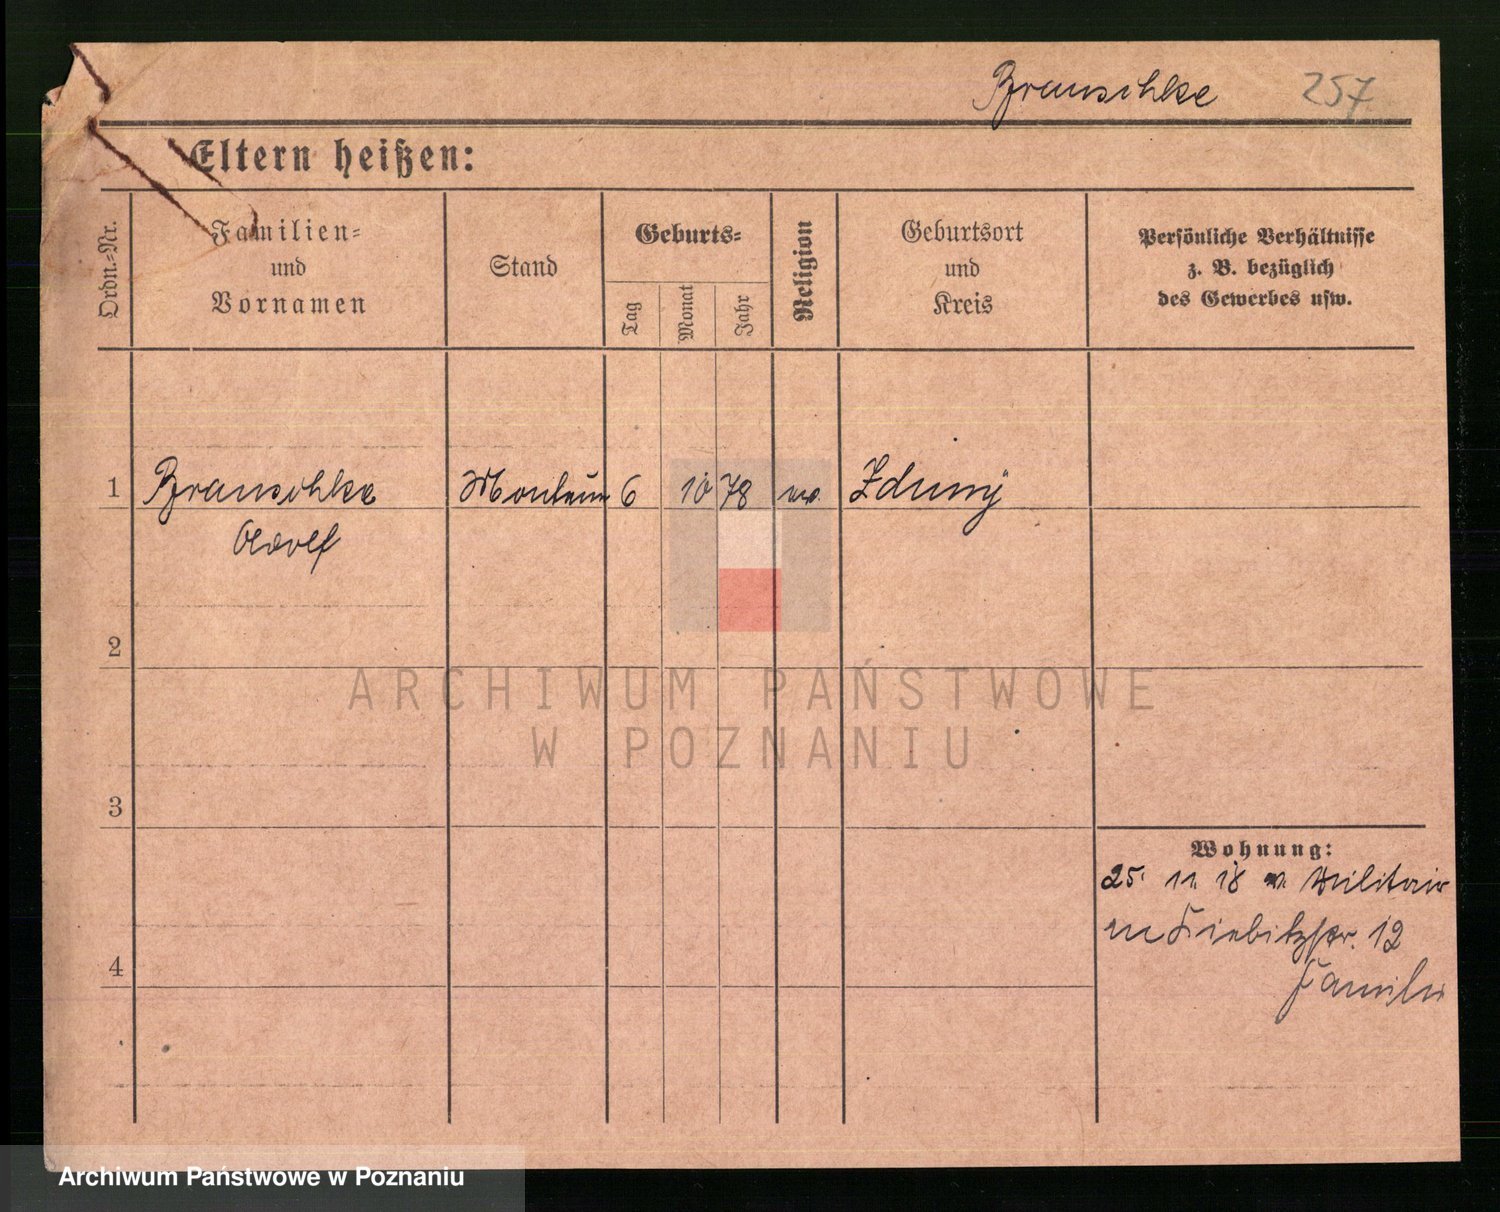 Branschke 257
Eltern heißen:
Ordn.-Nr.
Familien-
und
Vornamen
Stand
Geburts-
Tag
Monat
Jahr
Religion
Geburtsort
und
Kreis
Persönliche Verhältnisse
z. B. bezüglich
des Gewerbes usw.
1 Branschke Monteur 6 10 78 Zduny
Adolf
2
3
4
Wohnung:
25. 11. 18 v. Militair
Kiebitzstr. 12
Familie
ARCHIWUM PAŃSTWOWE
W POZNANIU
Archiwum Państwowe w Poznaniu